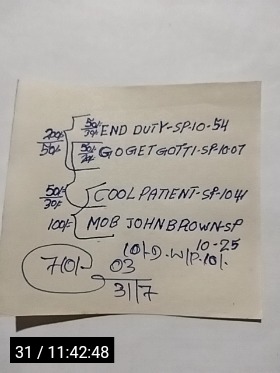 50/-
20/- END DUTY-SP-10-54
200/-
50/- 50/-
20/- GOGET GOTTI-SP-10-07
50/-
30/- COOLPATIENT-SP-10-41
100/- MOB JOHNBROWN-SP
10-25
10/-D.W/P.10/-
710/- 03
31/7
31 / 11:42:48